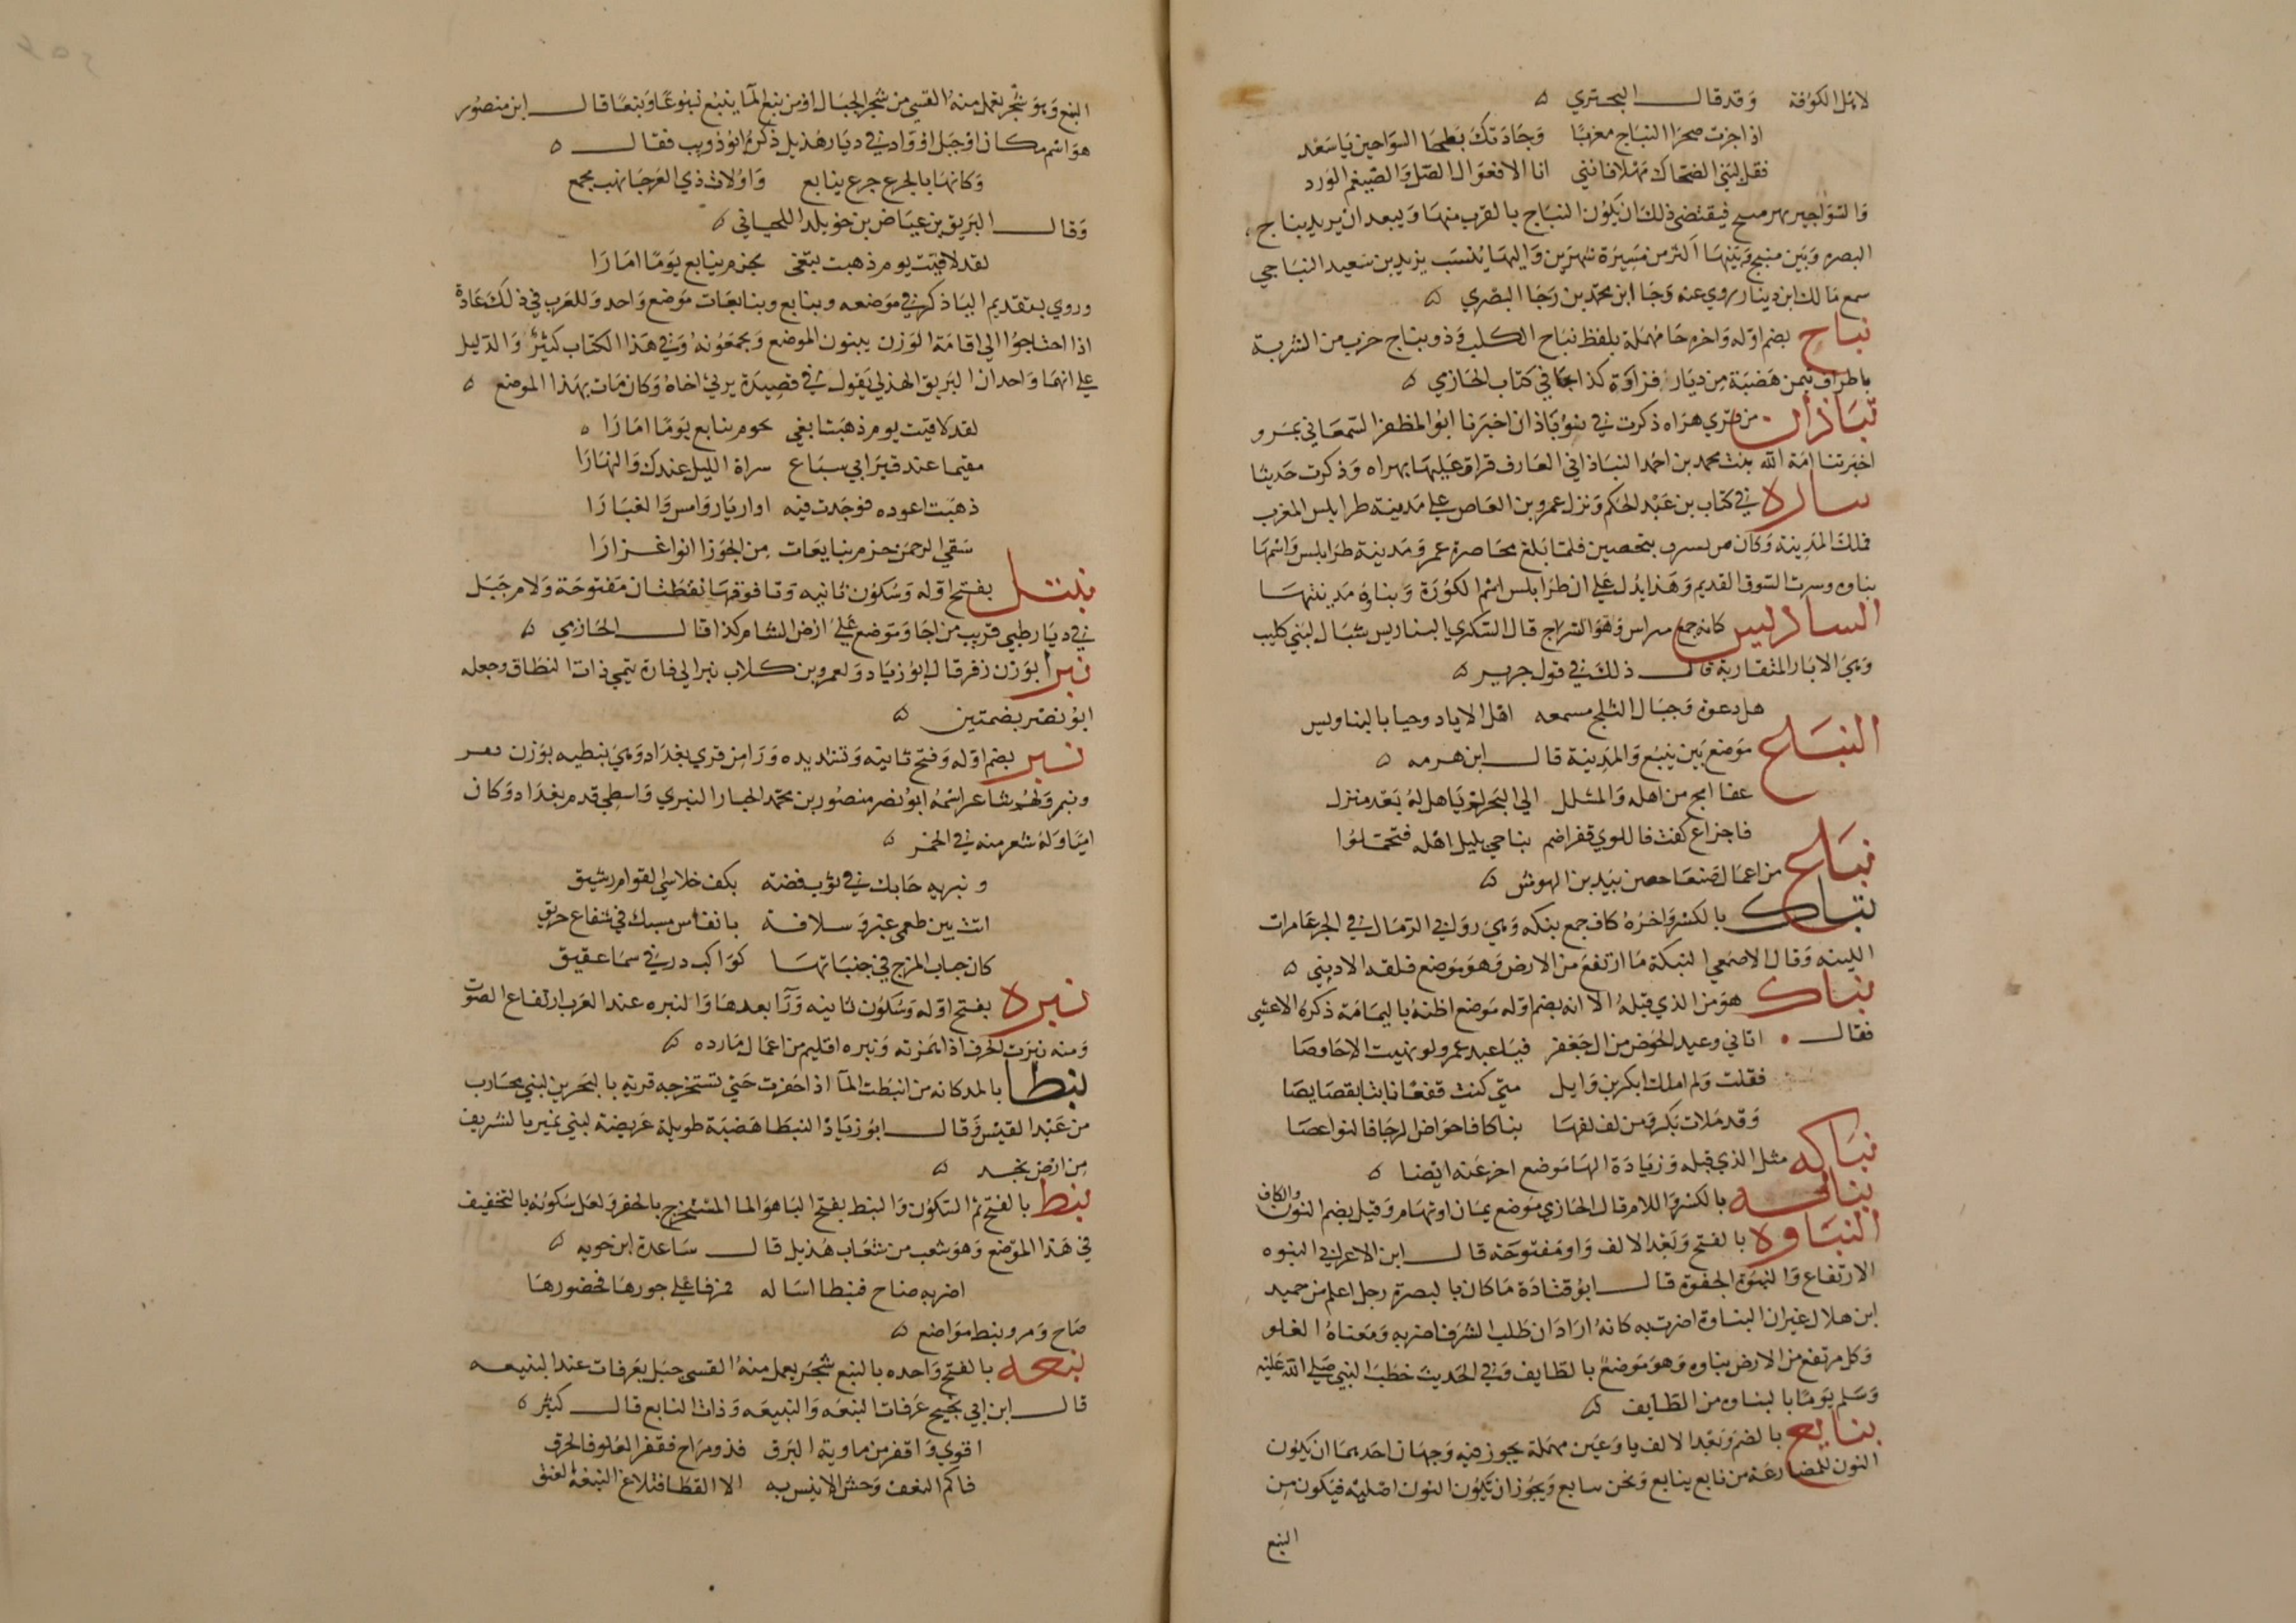 لاهل الكوفة وقد قال البحتري
اذا جزت صحرا النباج مغربا وجادتك بطحا السواحير يا سعد
فقل لبني الضحاك مهلا فانني انا الافعوال الصل والضيغم الورد
والسواجير نهر منبج فيقتضي ذلك ان يكون النباج بالقرب منها ويبعد ان يريد بنباج
البصره وبين منبج وبينها اكثر من مسيرة شهرين واليها ينسب يزيد بن سعيد النباجي
سمع مالك ابن دينار روي عنه رجا ابن محمد بن رجا البصري
نباح بضم اوله واخره حا مهملة بلفظ نباح الكلب وذو نباح حزم من الشربة
باطراف تيمن هضبة من ديار فزاوة كذا جا في كتاب الحازمي
نباذان من قري هراه ذكرت في بنوباذان اخبرنا ابو المظفر السمعاني بمرو
اخبرتنا امة الله بنت محمد بن احمد النباذاني العارف قراة عليها بهراه وذكرت حديثا
نباره في كتاب بن عبد الحكم ونزل عمرو بن العاص علي مدينة طرابلس المغرب
فملك المدينة وكان من بسرت متحصين فلما بلغ محاصرة عمرو مدينة طرابلس واسمها
نباره وسرت السوق القديم وهذا يدل علي ان طرابلس اسم الكورة ونباره مدينتها
النباريس كانه جمع نبراس وهو السراج قال السكري النباريس شبال لبني كليب
وهي الابار المتقاربة قال ذلك في قول جرير
هل دعوة وجبال الثلج مسمعه اهل الاياد وحيا بالنباريس
النباع موضع بين ينبع والمدينة قال ابن هرمه
عفا امج من اهله والمشلل الي البحر لم ياهل له بعد منزل
فاجزاع كفت فاللوي قفراضم نباعي بليل اهله فتحملوا
نباع من اعمال صنعا حصن بيد بن الهوش
نباك بالكسر واخره كاف جمع نبكه وهي روابي الرمال في الجرعاوات
اللينه وقال الاصمعي النبكة ما ارتفع من الارض وهو موضع
نباك هو من الذي قبله الا انه بضم اوله موضع اظنه باليمامة ذكره الاعشي
فقال اتاني وعيد الحوض من ال جعفر فيا عبد عمرو لو نهيت الاحاوصا
فقلت ولم املك ابكر بن وايل متي كنت فقعا نابتا بقصايصا
وقد ملات بكر ومن لف لفها نباكا فاحواض الرجا فالنواعصا
نباكه مثل الذي قبله وزيادة الها موضع اخر عنه ايضا
نباله بالكسر واللام قال الحازمي موضع يمان او تهام وقيل بضم النون والكاف
النباوه بالفتح وبعد الالف واو مفتوحه قال ابن الاعرابي النبوه
الارتفاع والنبوة الجفوة قال ابو قتادة ما كان بالبصرة رجل اعلم من حميد
ابن هلال غير ان النباوة اضرت به كانه اراد ان طلب الشرف اضر به ومعناه الغلو
وكل مرتفع من الارض نباوه وهو موضع بالطايف وفي الحديث خطب النبي صلي الله عليه
وسلم يوما بالنباوه من الطايف
نبايع بالضم وبعد الالف يا وعين مهملة يجوز فيه وجهان احديهما ان يكون
النون للمضارعة من نابع ينابع ونحن نبايع ويجوز ان يكون النون اصلية فيكون من
النبع
النبع وهو شجر يعمل منه القسي من شجر الجبال او من نبع الما ينبع نبوعا ونبعا قال ابن منصور
هو اسم مكان او جبل او واد في ديار هذيل ذكره ابو ذويب فقال
وكانها بالجزع جزع ينابع واولات ذي العرجا نهب مجمع
وقال البريق بن عياض بن خويلد اللحياني
لقد لاقيت يوم ذهبت تبغي بحزم ينابع يوما امارا
وروي بتقديم اليا ذكر في موضعه ونبايع ونبايعات موضع واحد وللعرب في ذلك عادة
اذا احتاجوا الي اقامة الوزن يثنون الموضع ويجمعونه وفي هذا الكتاب كثير والدليل
علي انهما واحد ان البريق الهذلي يقول في قصيدة يرثي اخاه وكان مات بهذا الموضع
لقد لاقيت يوم ذهبت ابغي بحزم نبايع يوما امارا
مقيما عند قبر ابي سباع سراة الليل عندك والنهارا
ذهبت اعوده فوجدت فيه اواريا روامس والغبارا
سقي الرحمن حزم نبايعات من الجوزا انوا غزارا
نبتل بفتح اوله وسكون ثانيه وتا فوقها نقطتان مفتوحة ولام جبل
في ديار طيي قريب من اجا وموضع علي ارض الشام كذا قال الحازمي
نبرا بوزن زفر قال ابو زياد ولعمرو بن كلاب نبر الي قارة تسمي ذات النطاق وجعله
ابو نصر بضمتين
نبر بضم اوله وفتح ثانيه وتشديده ورا من قري بغداد وهي نبطيه بوزن
ونمر ولهم شاعر اسمه ابو نصر منصور بن محمد الخباز النبري واسطي قدم بغداد وكان
اميا وله شعر منه في الخمر
ونبريه جابك في ثوب فضة بكف خلاسي القوام رشيق
اتت بين طعمي عنبر وسلافة بانفاس مسك في شعاع حريق
كان حباب المزج في جنباتها كواكب در في سما عقيق
نبره بفتح اوله وسكون ثانيه ورا بعدها والنبره عند العرب ارتفاع الصوت
ومنه نبرت الحرف اذا همزته ونبره اقليم من اعمال مارده
نبطا بالمد كانه من انبطت الما اذا حفرت حتي تستخرجه قرية بالبحرين لبني محارب
من عبد القيس وقال ابو زياد النبطا هضبة طويلة عريضة لبني نمير بالشريف
من ارض نجد
نبط بالفتح ثم السكون والنبط بفتح البا هو الما المستخرج بالحفر ولعل سكونه بالتخفيف
في هذا الموضع وهو شعب من شعاب هذيل قال ساعدة ابن جويه
اضر به ضاح فنبطا اساله فمر فاعلي جوزها فخضورها
ضاح ومر ونبط مواضع
نبعه بالفتح واحده بالنبع شجر يعمل منه القسي جبل بعرفات عند النبيعه
قال ابن ابي نجيح عرفات النبعه والنبيعه وذات النابع قال كثير
اقوي واقفر من ماوية البرق فذو مراخ فقفر العلو فالحرق
فاكم النعف وحش لا انيس به الا القطا فتلاع النبعة العنق